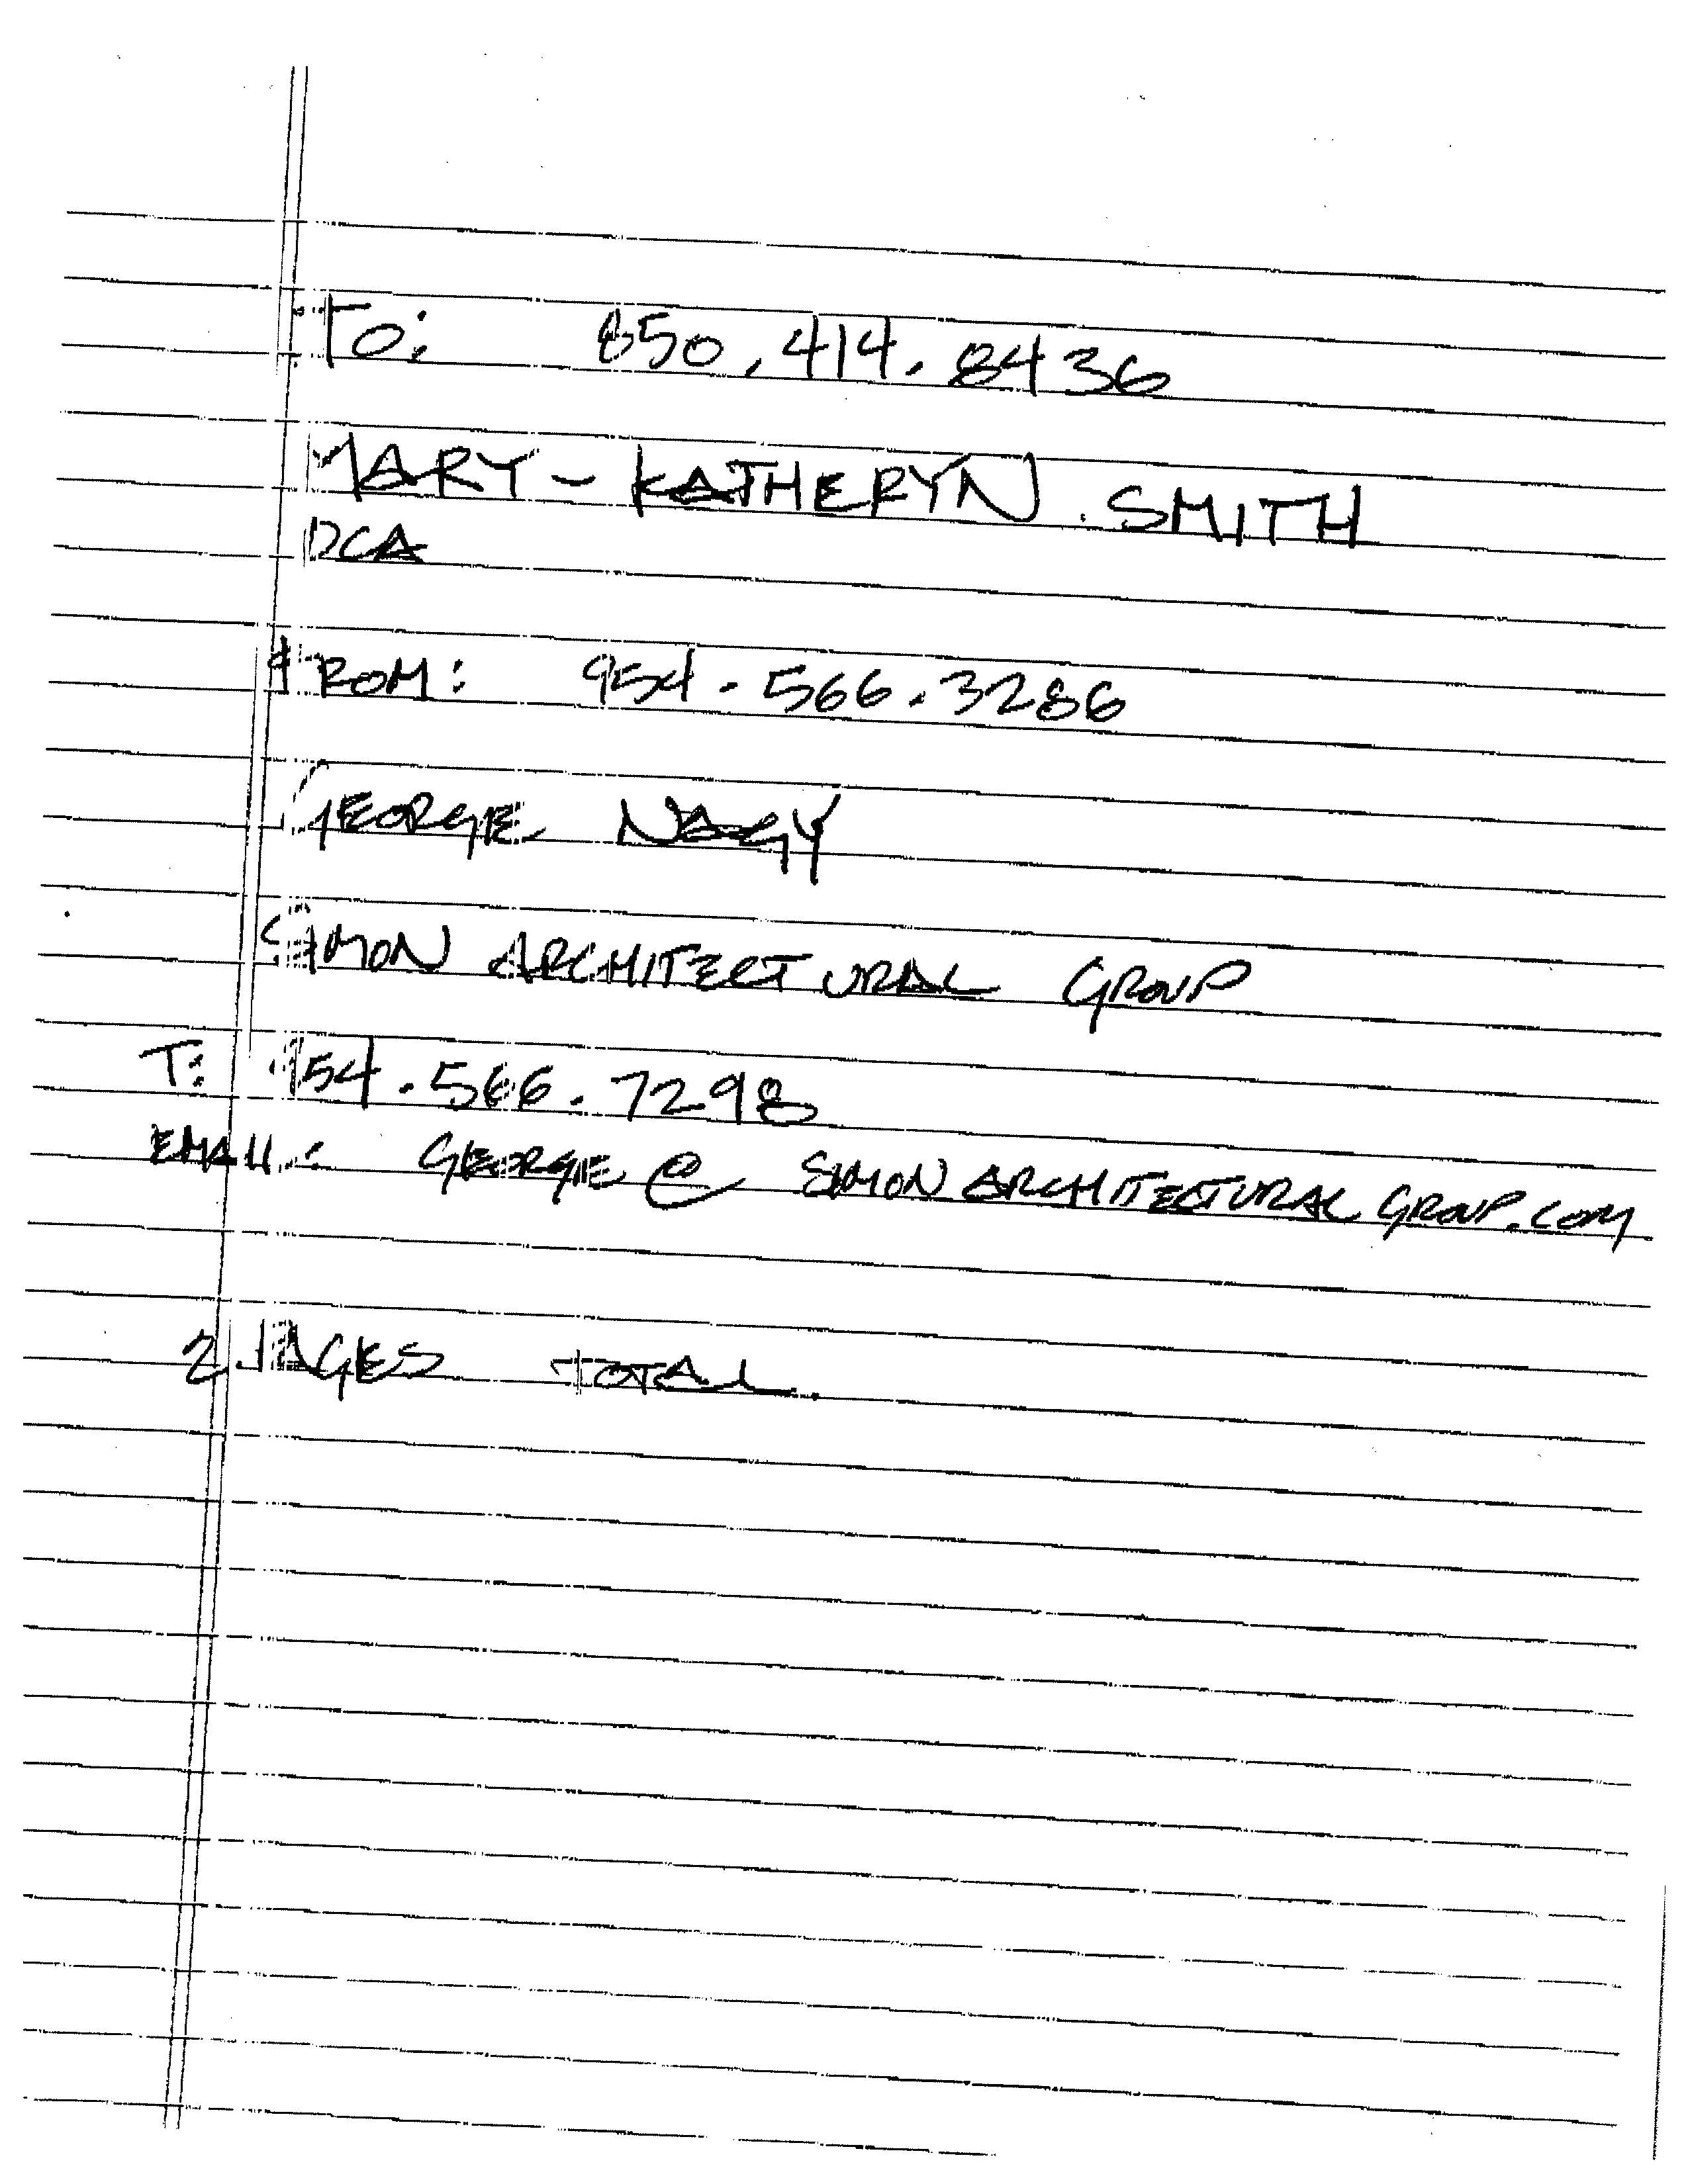 To: 850.414.8436
MARY-KATHERYN SMITH
DCA
FROM: 954.566.3286
GEORGE NAGY
SIMON ARCHITECTURAL GROUP
T: 954.566.7298
EMAIL: GEORGE@SIMONARCHITECTURALGROUP.COM
2 PAGES TOTAL